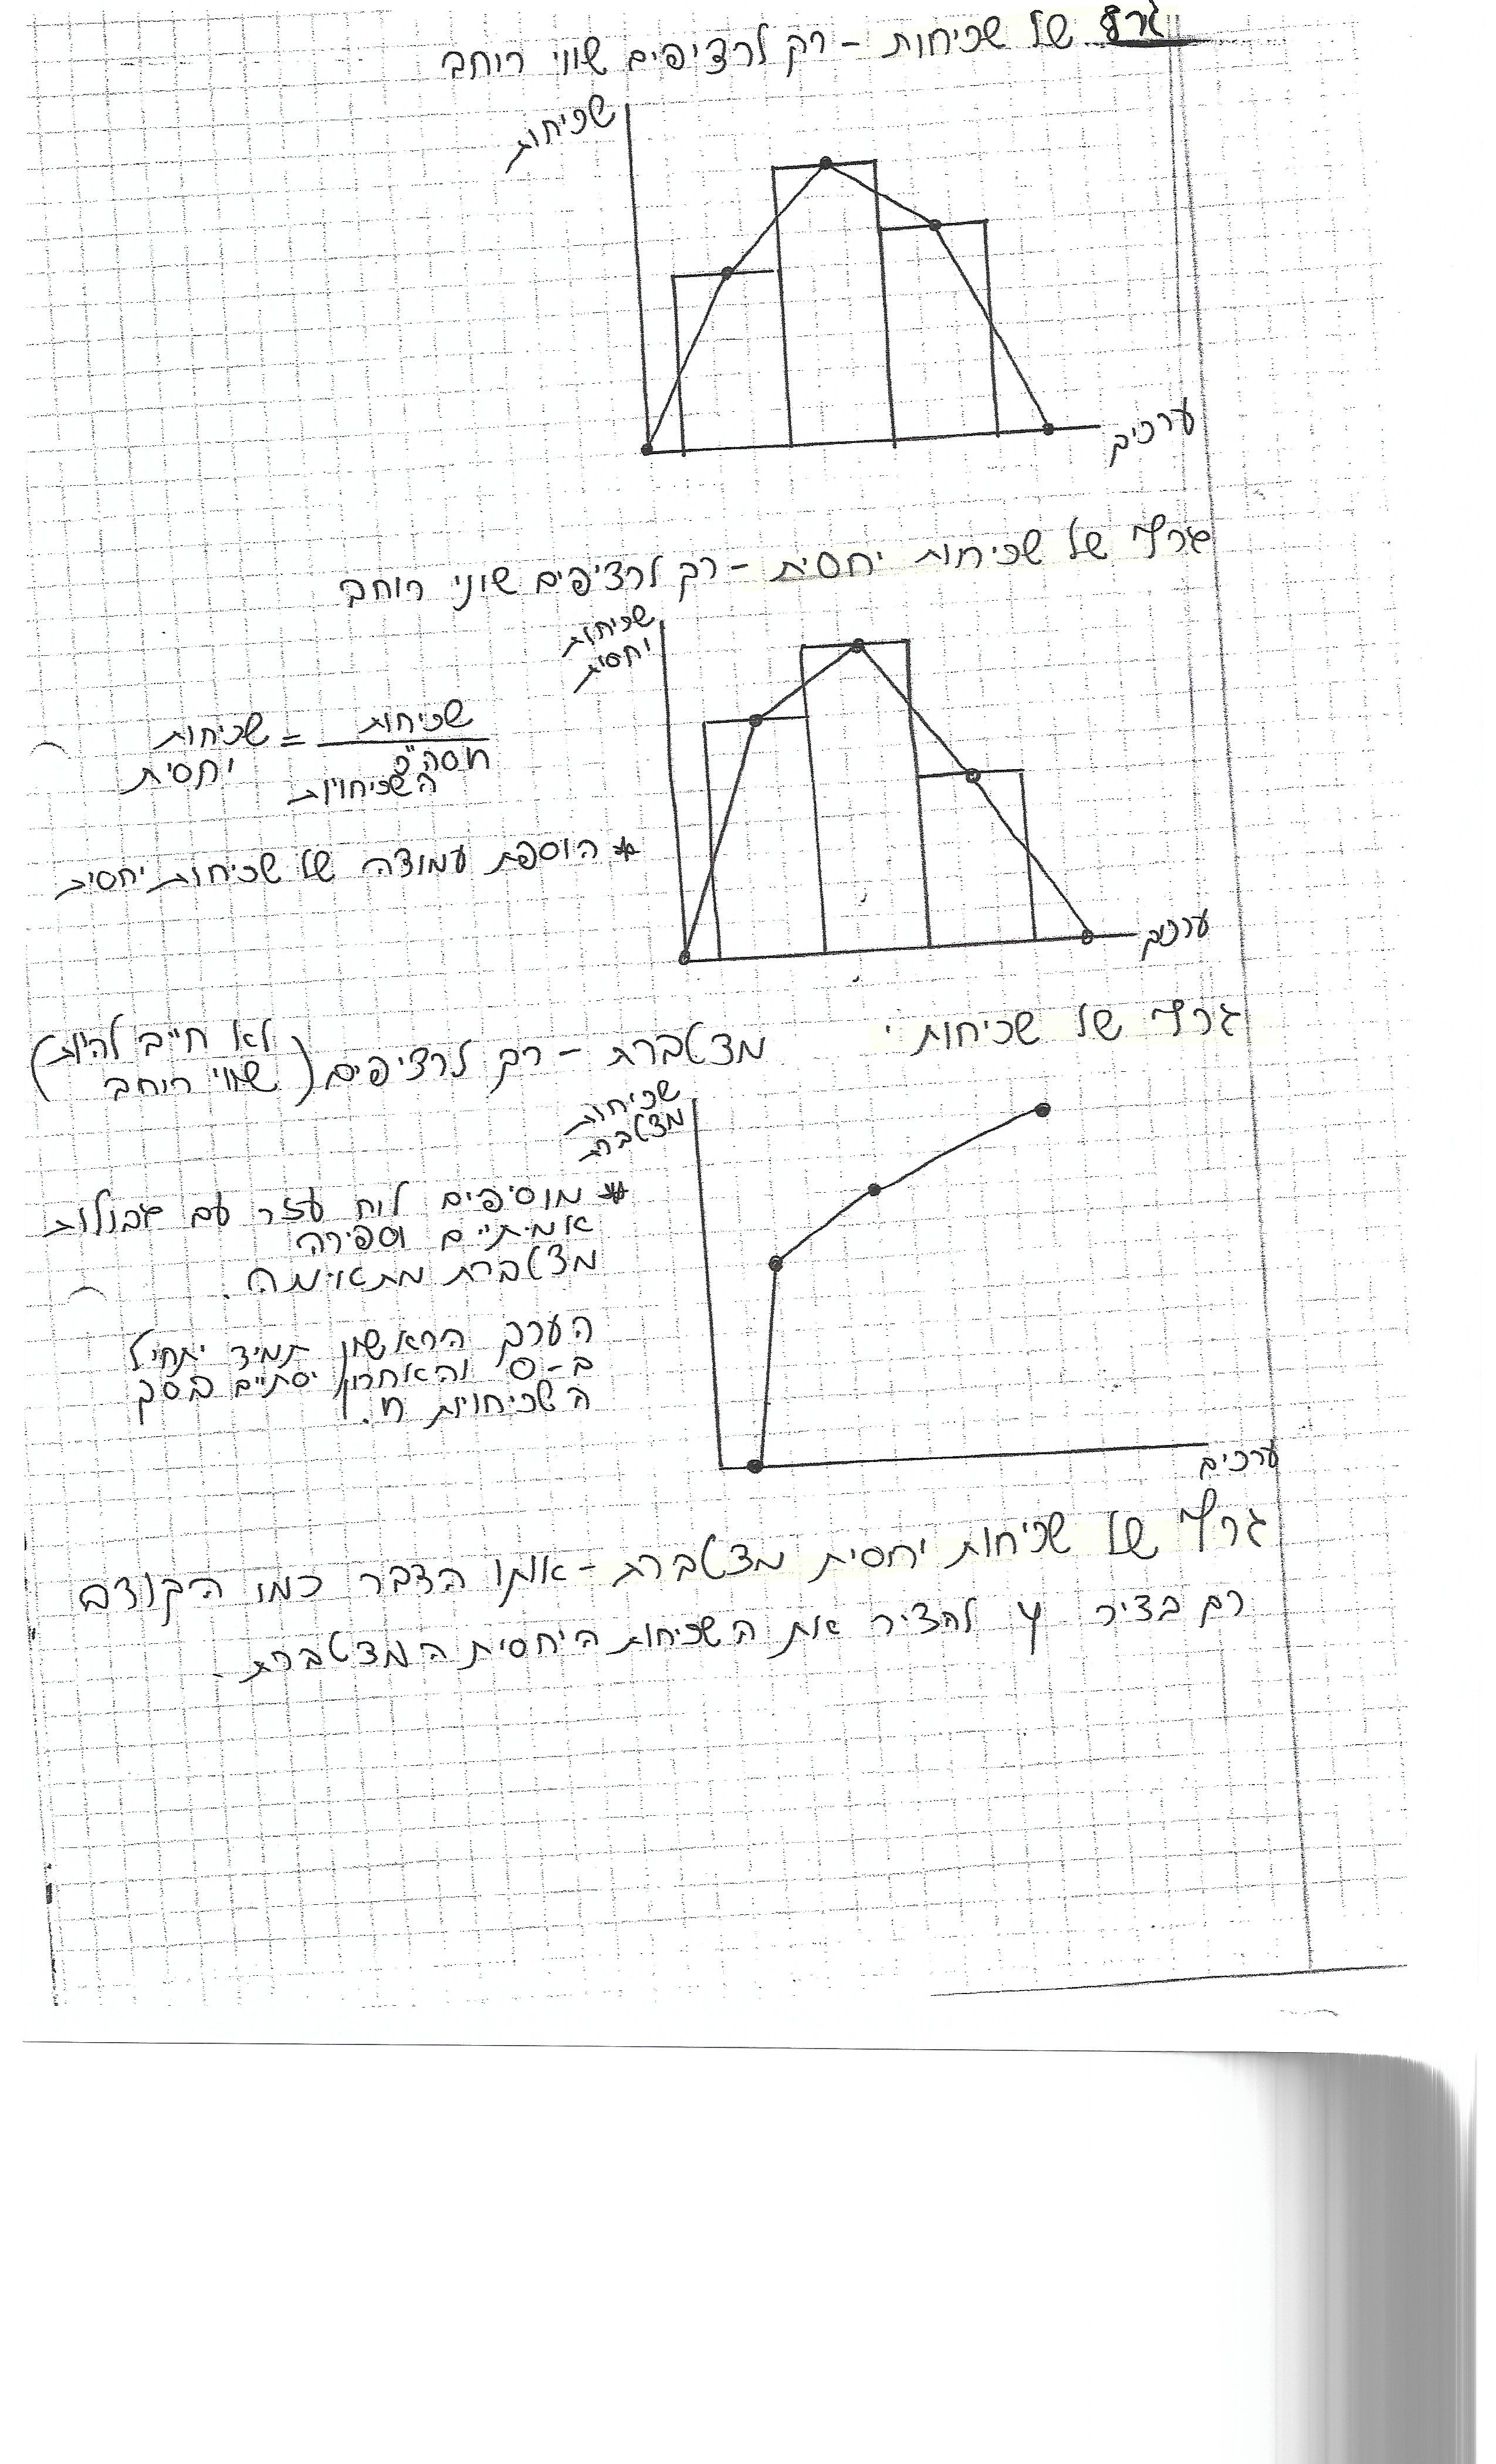 גרף של שכיחות - רק לרציפים שווי רוחב
שכיחות
ערכים
גרף של שכיחות יחסית - רק לרציפים שווי רוחב
שכיחות
יחסית
שכיחות יחסית = שכיחות / n סה"כ השכיחויות
* הוספת עמודה של שכיחות יחסית
ערכים
גרף של שכיחות מצטברת - רק לרציפים (לא חייב להיות שווי רוחב)
שכיחות
מצטברת
* מוסיפים לוח עזר עם גבולות
אמיתיים וספירה
מצטברת מתאימה.
הערך הראשון תמיד יתחיל
ב-0 והאחרון יסתיים בסך
השכיחויות n.
ערכים
גרף של שכיחות יחסית מצטברת - אותו הדבר כמו הקודם
רק בציר y להציר את השכיחות היחסית המצטברת.